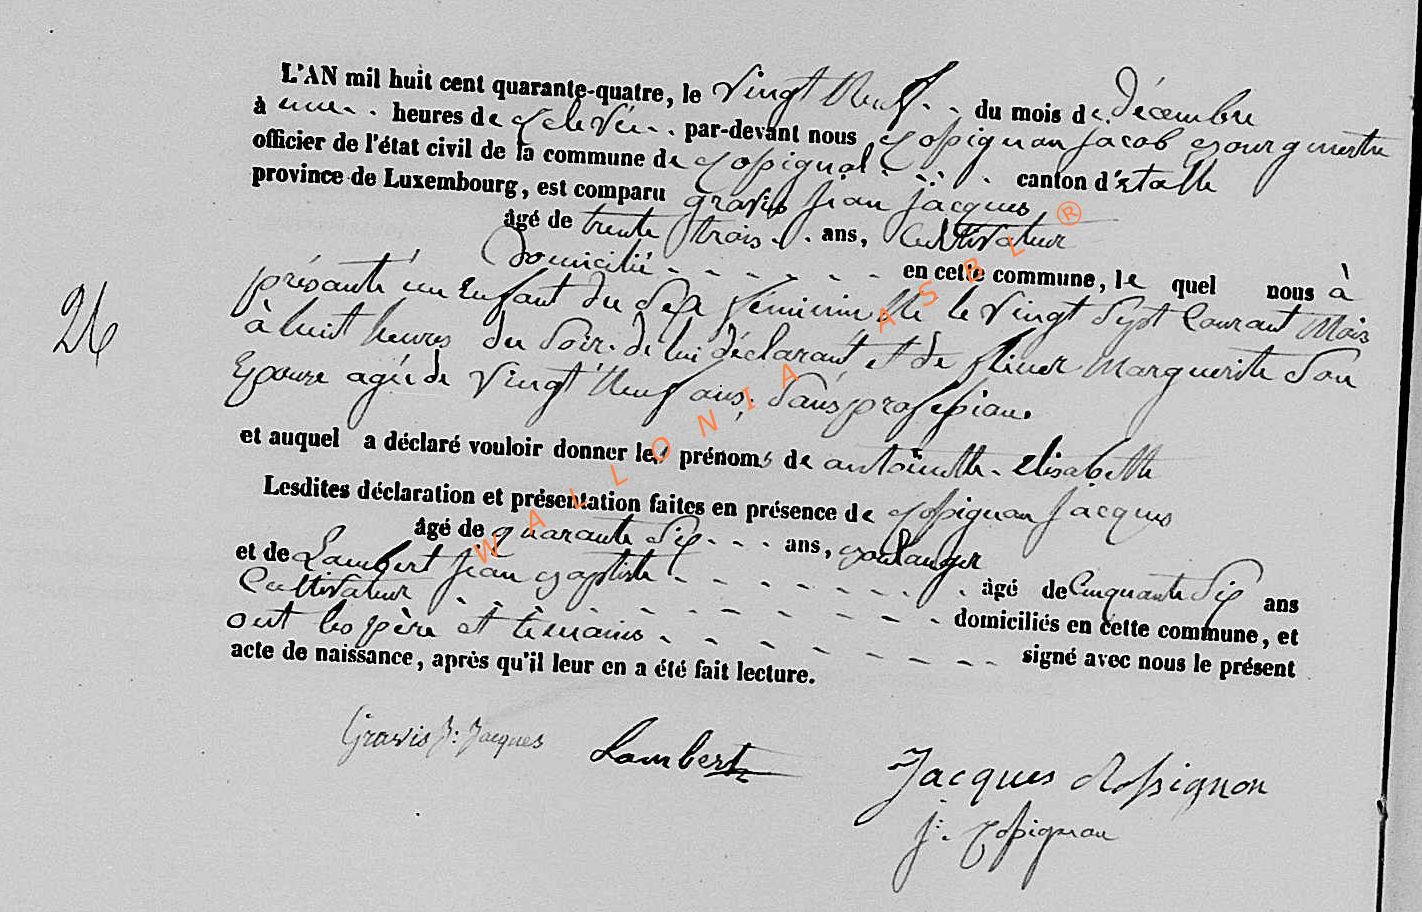 L'AN mil huit cent quarante-quatre, le Vingt Neuf du mois de Décembre
à une heures de relevée par-devant nous Rossignon Jacob Bourgmestre
officier de l'état civil de la commune de Rossignol canton d'Etalle
province de Luxembourg, est comparu Gravis Jean Jacques
âgé de trente trois ans, Cultivateur
Domicilié en cette commune, le quel nous à
présanté un Enfant du Sex féminin Né le Vingt Sept Courant Mois
26
à huit heures du Soir. de lui déclarant, et de Marguerite Son
Epouze agée de Vingt Neuf ans, Sans profession.
et auquel a déclaré vouloir donner les prénoms de antoinette Elisabette
Lesdites déclaration et présentation faites en présence de Rossignon Jacques
âgé de quarante Six ans, Boulanger
et de Lambert Jean Baptiste âgé de Cinquante Six ans
Cultivateur domiciliés en cette commune, et
ont les père et témoins signé avec nous le présent
acte de naissance, après qu'il leur en a été fait lecture.
Gravis J: Jacques Lambert Jacques Rossignon
J. Rossignon
WALLONIA ASBL ®